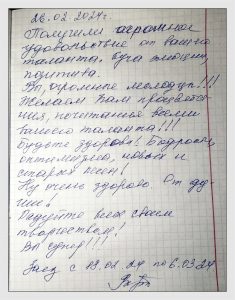 26.02.2024г.
Получили огромное
удовольствие от вашего
таланта, буча эмоций,
позитива.
Вы, огромные молодцы!!!
Желаем Вам процвета-
ния, почитания всеми
Вашего таланта!!!
Будьте здоровы! Бодрости,
оптимизма, новых и
старых песен!
Ну очень здорово. От ду-
ши!
Радуйте всех своим
творчеством!
Вы супер!!!
Заезд с 19.02.24 по 6.03.24